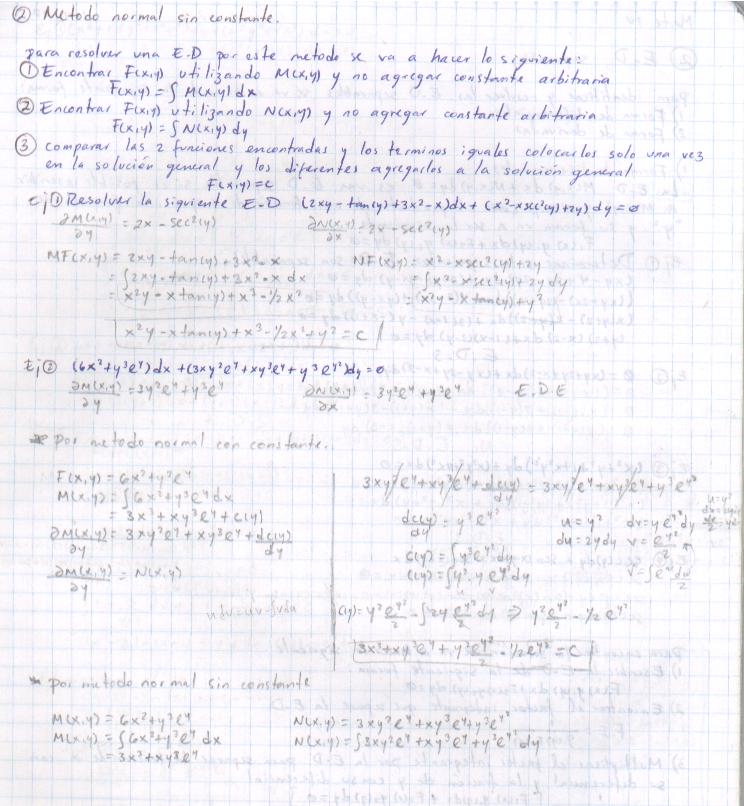 ② Metodo normal sin constante.
para resolver una E.D por este metodo se va a hacer lo siguiente:
① Encontrar F(x,y) utilizando M(x,y) y no agregar constante arbitraria
F(x,y) = ∫ M(x,y) dx
② Encontrar F(x,y) utilizando N(x,y) y no agregar constante arbitraria
F(x,y) = ∫ N(x,y) dy
③ comparar las 2 funciones encontradas y los terminos iguales colocarlos solo una vez
en la solución general y los diferentes agregarlos a la solución general
F(x,y) = c
Ej ① Resolver la siguiente E.D (2xy - tan(y) + 3x² - x)dx + (x² - xsec²(y) + 2y) dy = 0
∂M(x,y)/∂y = 2x - sec²(y) ∂N(x,y)/∂x = 2x - sec²(y)
MF(x,y) = 2xy - tan(y) + 3x² - x NF(x,y) = x² - xsec²(y) + 2y
= ∫2xy - tan(y) + 3x² - x dx = ∫x² - xsec²(y) + 2y dy
= x²y - x tan(y) + x³ - 1/2 x² = x²y - x tan(y) + y²
x²y - x tan(y) + x³ - 1/2x² + y² = C
Ej ② (6x² + y³e^y)dx + (3xy²e^y + xy³e^y + y³e^y²)dy = 0
∂M(x,y)/∂y = 3y²e^y + y³e^y ∂N(x,y)/∂x = 3y²e^y + y³e^y E.D.E
* por metodo normal con constante.
F(x,y) = 6x² + y³e^y
M(x,y) = ∫6x² + y³e^y dx
= 3x³ + xy³e^y + c(y)
∂M(x,y)/∂y = 3xy²e^y + xy³e^y + dc(y)/dy
∂M(x,y)/∂y = N(x,y)
udv = uv - ∫vdu
3xy²e^y + xy³e^y + dc(y)/dy = 3xy²e^y + xy³e^y + y³e^y²
dc(y)/dy = y³e^y² u = y² dv = ye^y² dy
du = 2ydy v = e^y²/2
c(y) = ∫y³e^y² dy
c(y) = ∫y². ye^y² dy v = ∫e^u du/2
c(y) = y² e^y²/2 - ∫2y e^y²/2 dy ⇒ y² e^y²/2 - 1/2 e^y²
3x³ + xy³e^y + y² e^y²/2 - 1/2e^y² = C
* por metodo normal sin constante
M(x,y) = 6x² + y³e^y N(x,y) = 3xy²e^y + xy³e^y + y³e^y²
M(x,y) = ∫6x² + y³e^y dx N(x,y) = ∫3xy²e^y + xy³e^y + y³e^y² dy
= 3x³ + xy³e^y